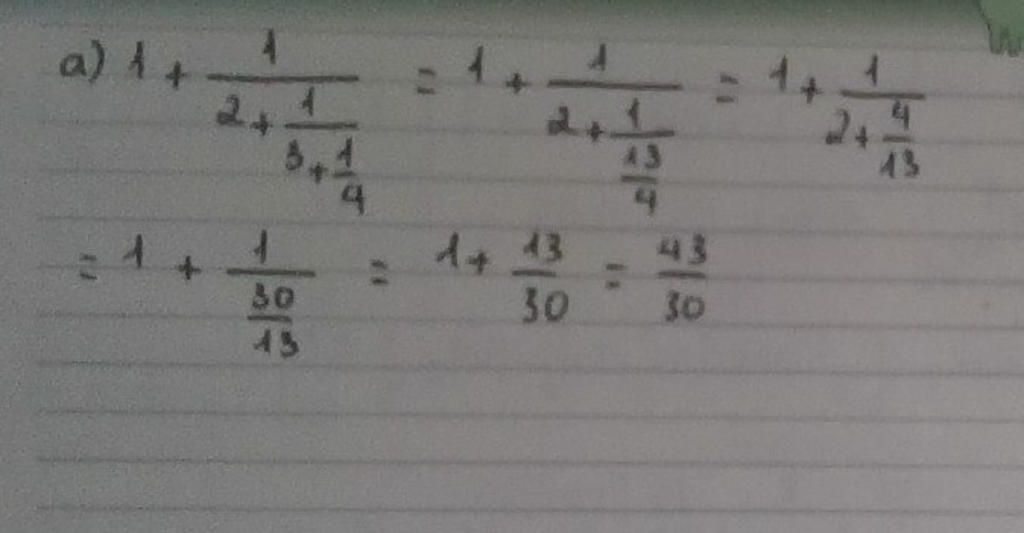 a) 1 + \frac{1}{2 + \frac{1}{3 + \frac{1}{4}}} = 1 + \frac{1}{2 + \frac{1}{\frac{13}{4}}} = 1 + \frac{1}{2 + \frac{4}{13}}
= 1 + \frac{1}{\frac{30}{13}} = 1 + \frac{13}{30} = \frac{43}{30}